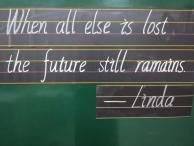 When all else is lost
the future still remains.
— Linda